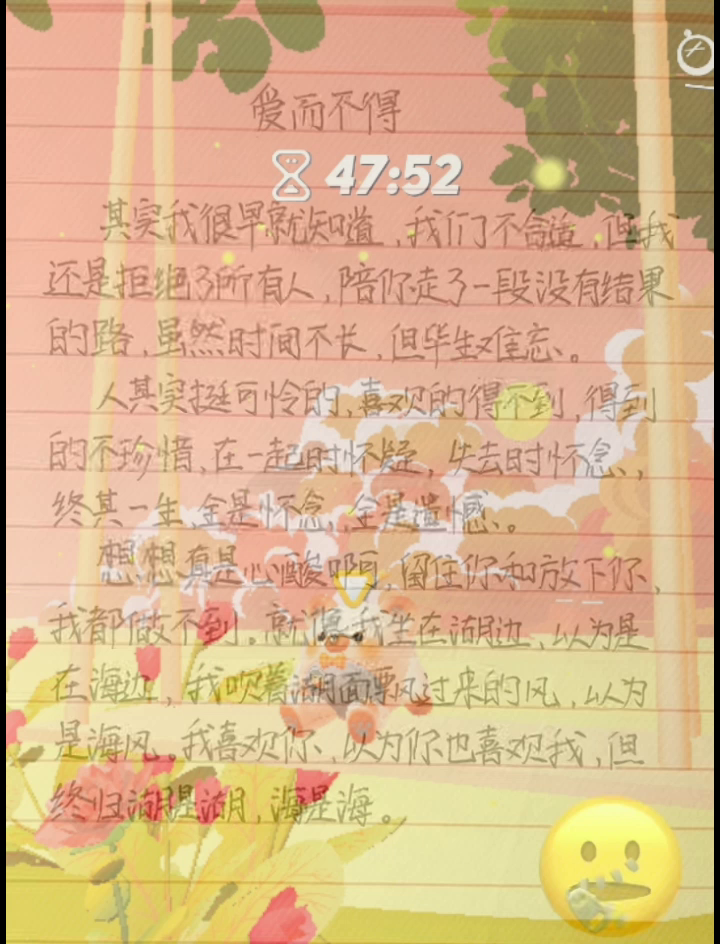 爱而不得
47:52
其实我很早就知道,我们不合适,但我
还是拒绝了所有人,陪你走了一段没有结果
的路,虽然时间不长,但毕生难忘。
人其实挺可怜的,喜欢的得不到,得到
的不珍惜,在一起时怀疑,失去时怀念,
终其一生,全是怀念,全是遗憾。
想想真是心酸啊,留住你和放下你,
我都做不到。就像我坐在湖边,以为是
在海边,我吹着湖面飘过来的风,以为
是海风,我喜欢你,以为你也喜欢我,但
终归湖是湖,海是海。